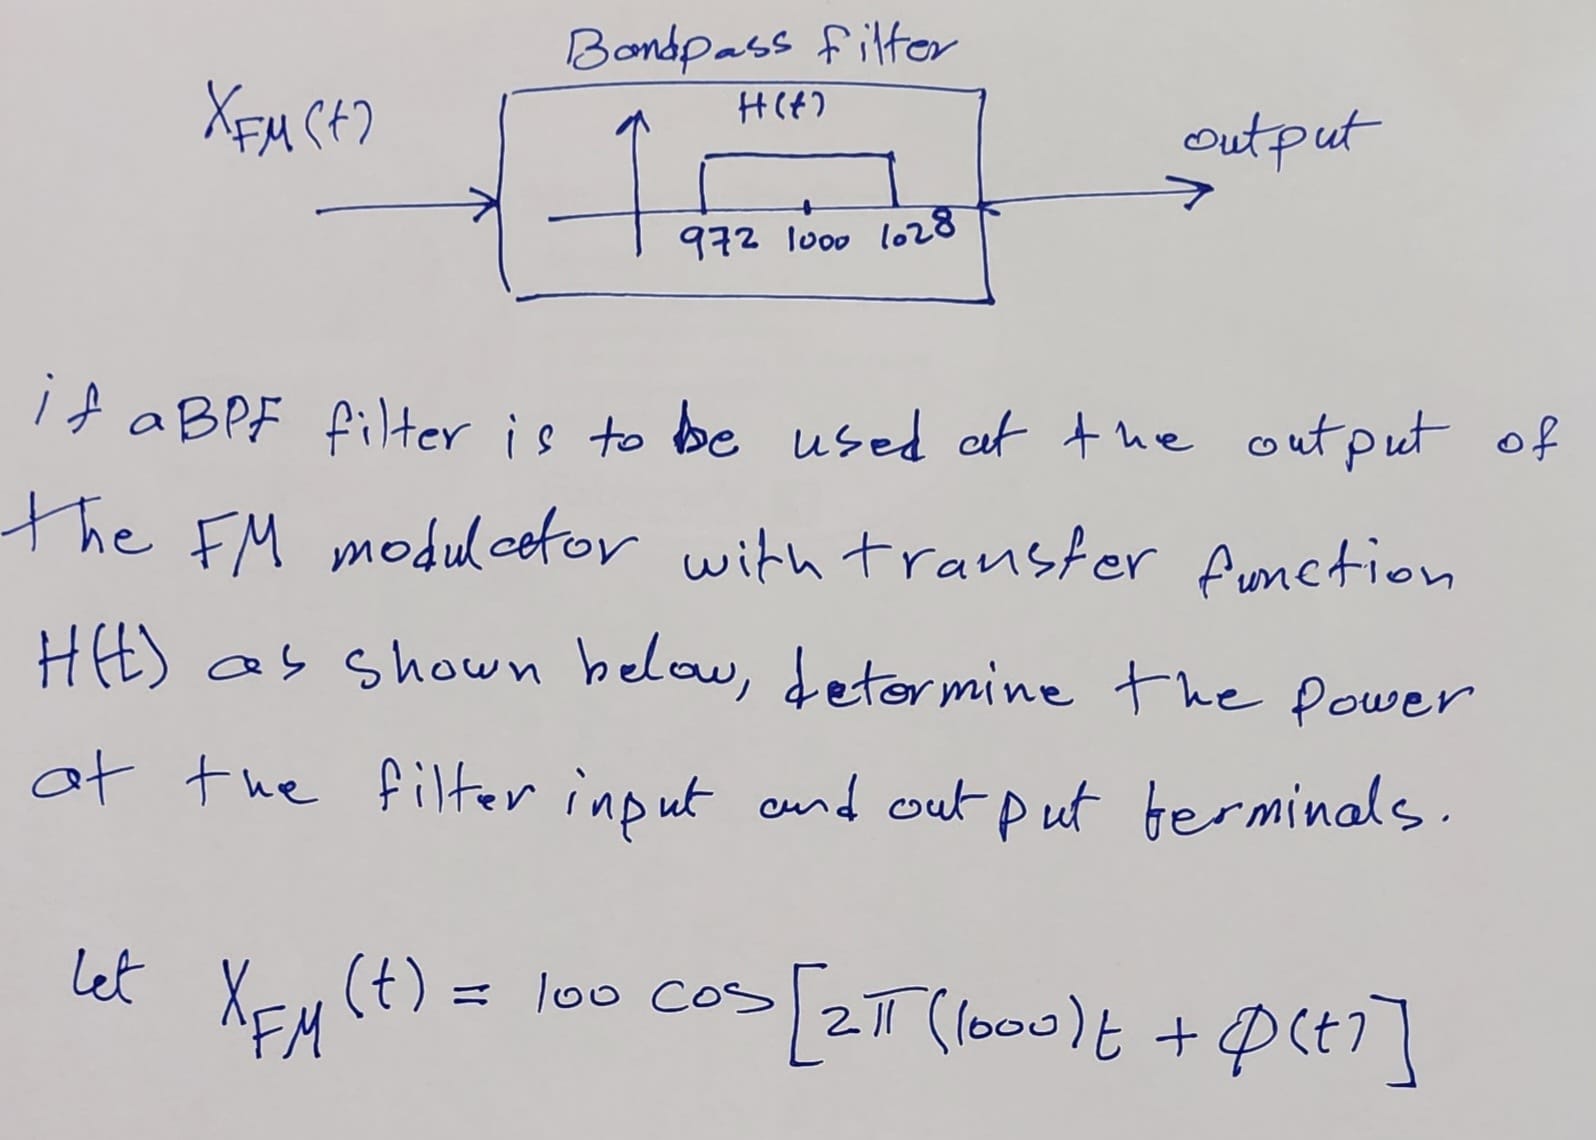 Bandpass filter
XFM(t)
H(t)
output
972 1000 1028
if a BPF filter is to be used at the output of
the FM modulator with transfer function
H(t) as shown below, determine the power
at the filter input and output terminals.
let XFM(t) = 100 cos [2π(1000)t + φ(t)]